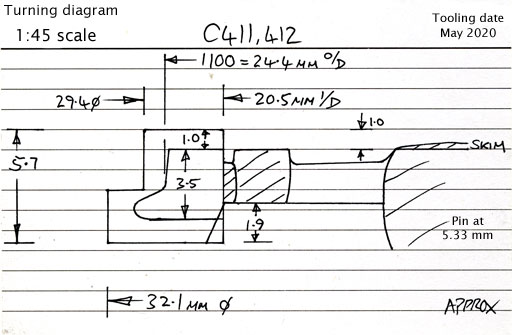 Turning diagram
1:45 scale
C411,412
Tooling date
May 2020
1100 = 24.4 MM O/D
29.4 ø
20.5 MM I/D
1.0
1.0
5.7
3.5
SKIM
1.9
Pin at
5.33 mm
32.1 MM ø
APPROX